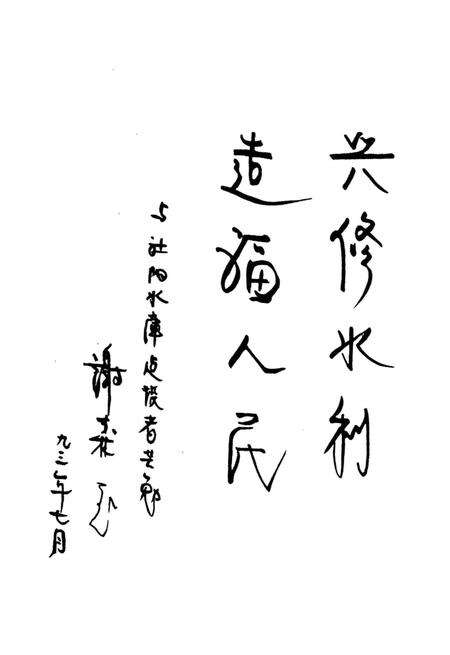 兴修水利
造福人民
与社阳水库建设者共勉
謝
九三年七月